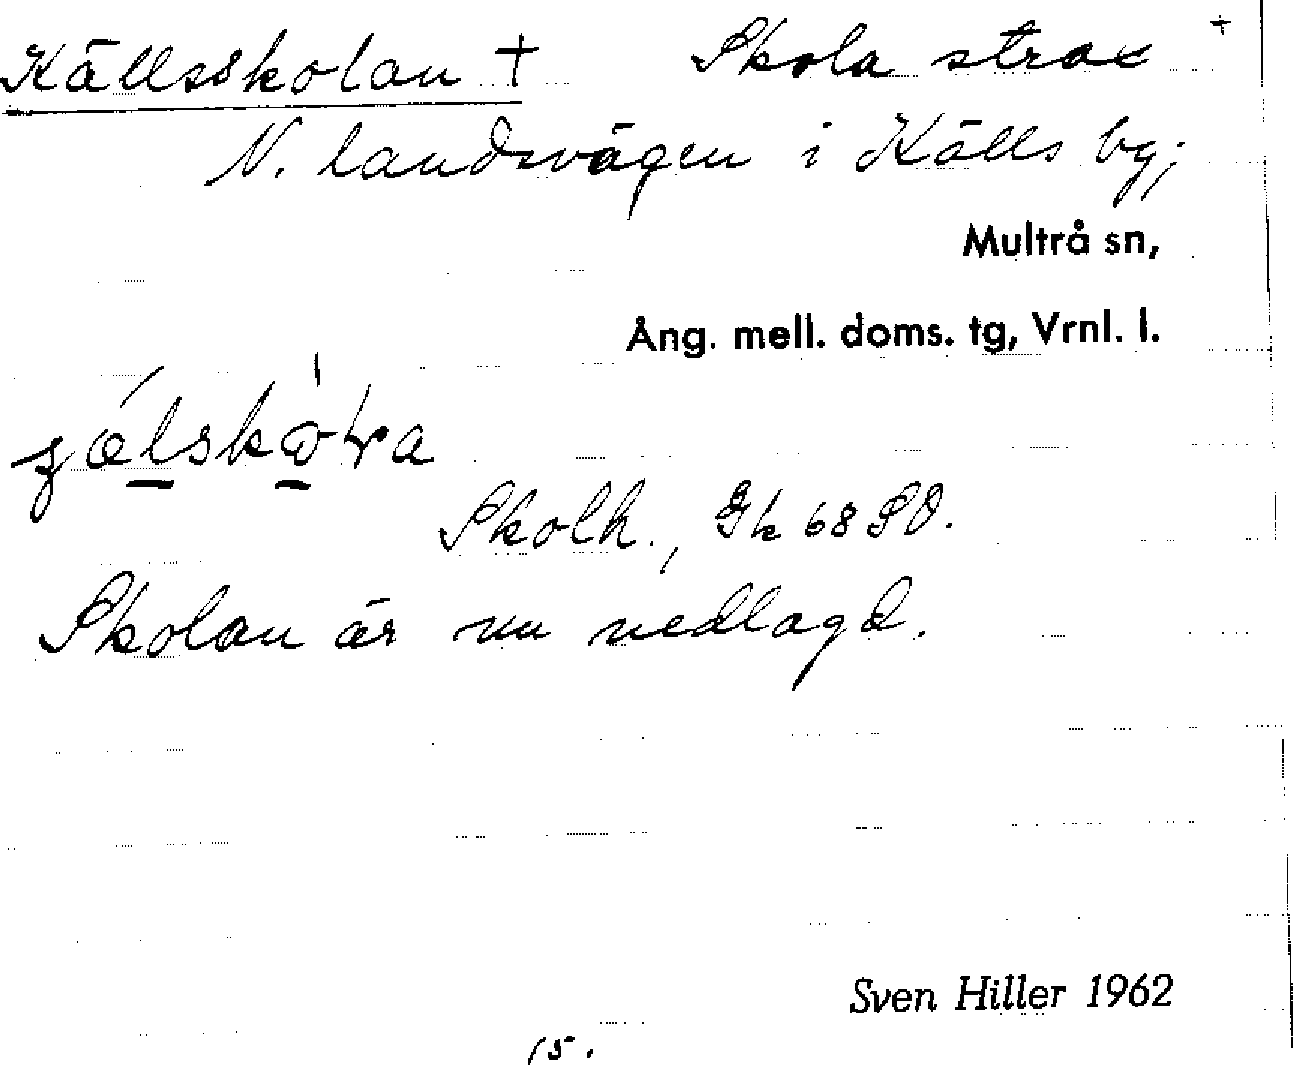 Källsskolan † Skola strax +
N. landsvägen i Källs by;
Multrå sn,
Ång. mell. doms. tg, Vrnl. l.
Skolh., Gk 68 SV.
Skolan är nu nedlagd.
Sven Hiller 1962
15.